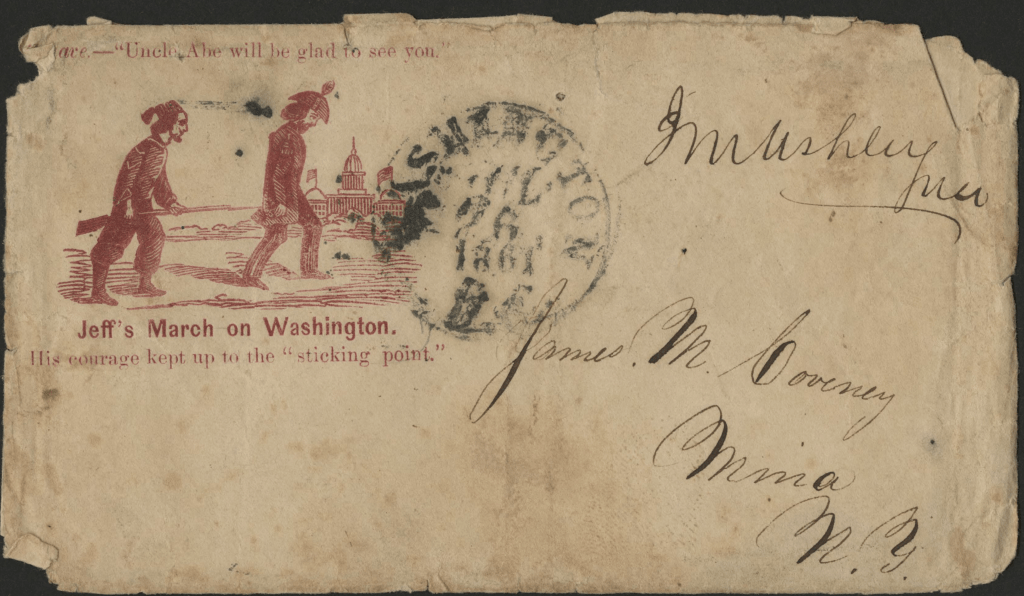 ave.—"Uncle Abe will be glad to see you."
WASHINGTON
JUL
26
1861
D.C.
Jeff's March on Washington.
His courage kept up to the "sticking point."
James. M. Coveney
Mina
N. Y.